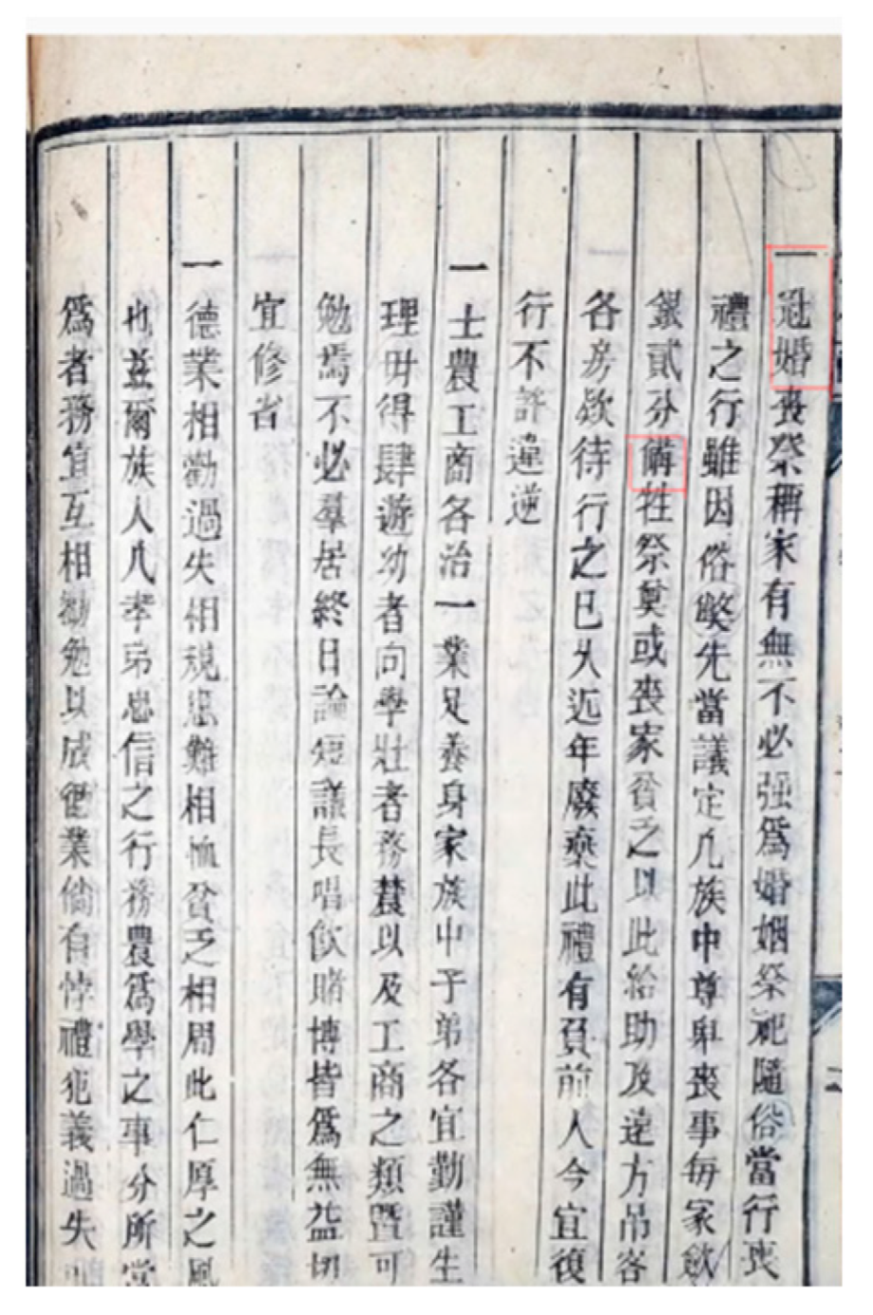 一冠婚喪祭稱家有無不必强爲婚姻祭祀隨俗當行喪
禮之行雖因俗獘先當議定凡族中尊卑喪事每家斂
銀貳分備牲祭奠或喪家貧乏以此給助及遠方吊客
各房欵待行之已久近年廢棄此禮有負前人今宜復
行不許違逆
一士農工商各治一業足養身家族中子弟各宜勤謹生
理毋得肆遊幼者向學壯者務農以及工商之類曁可
勉焉不必羣居終日論短議長唱飲賭博皆爲無益切
宜修省
一德業相勸過失相規患難相恤貧乏相周此仁厚之風
也並爾族人凡孝弟忠信之行務農爲學之事分所當
爲者務宜互相勸勉以成德業倘有悖禮犯義過失